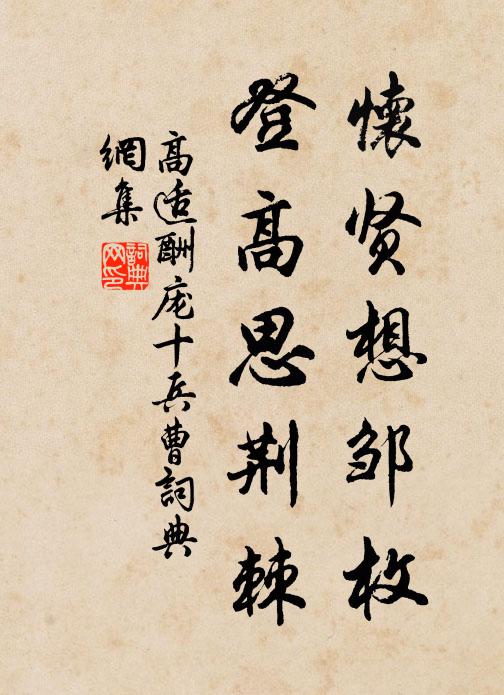 懷贤想邹枚
登高思荆棘
高适酬庞十兵曹詞典
網集
詞典
网印